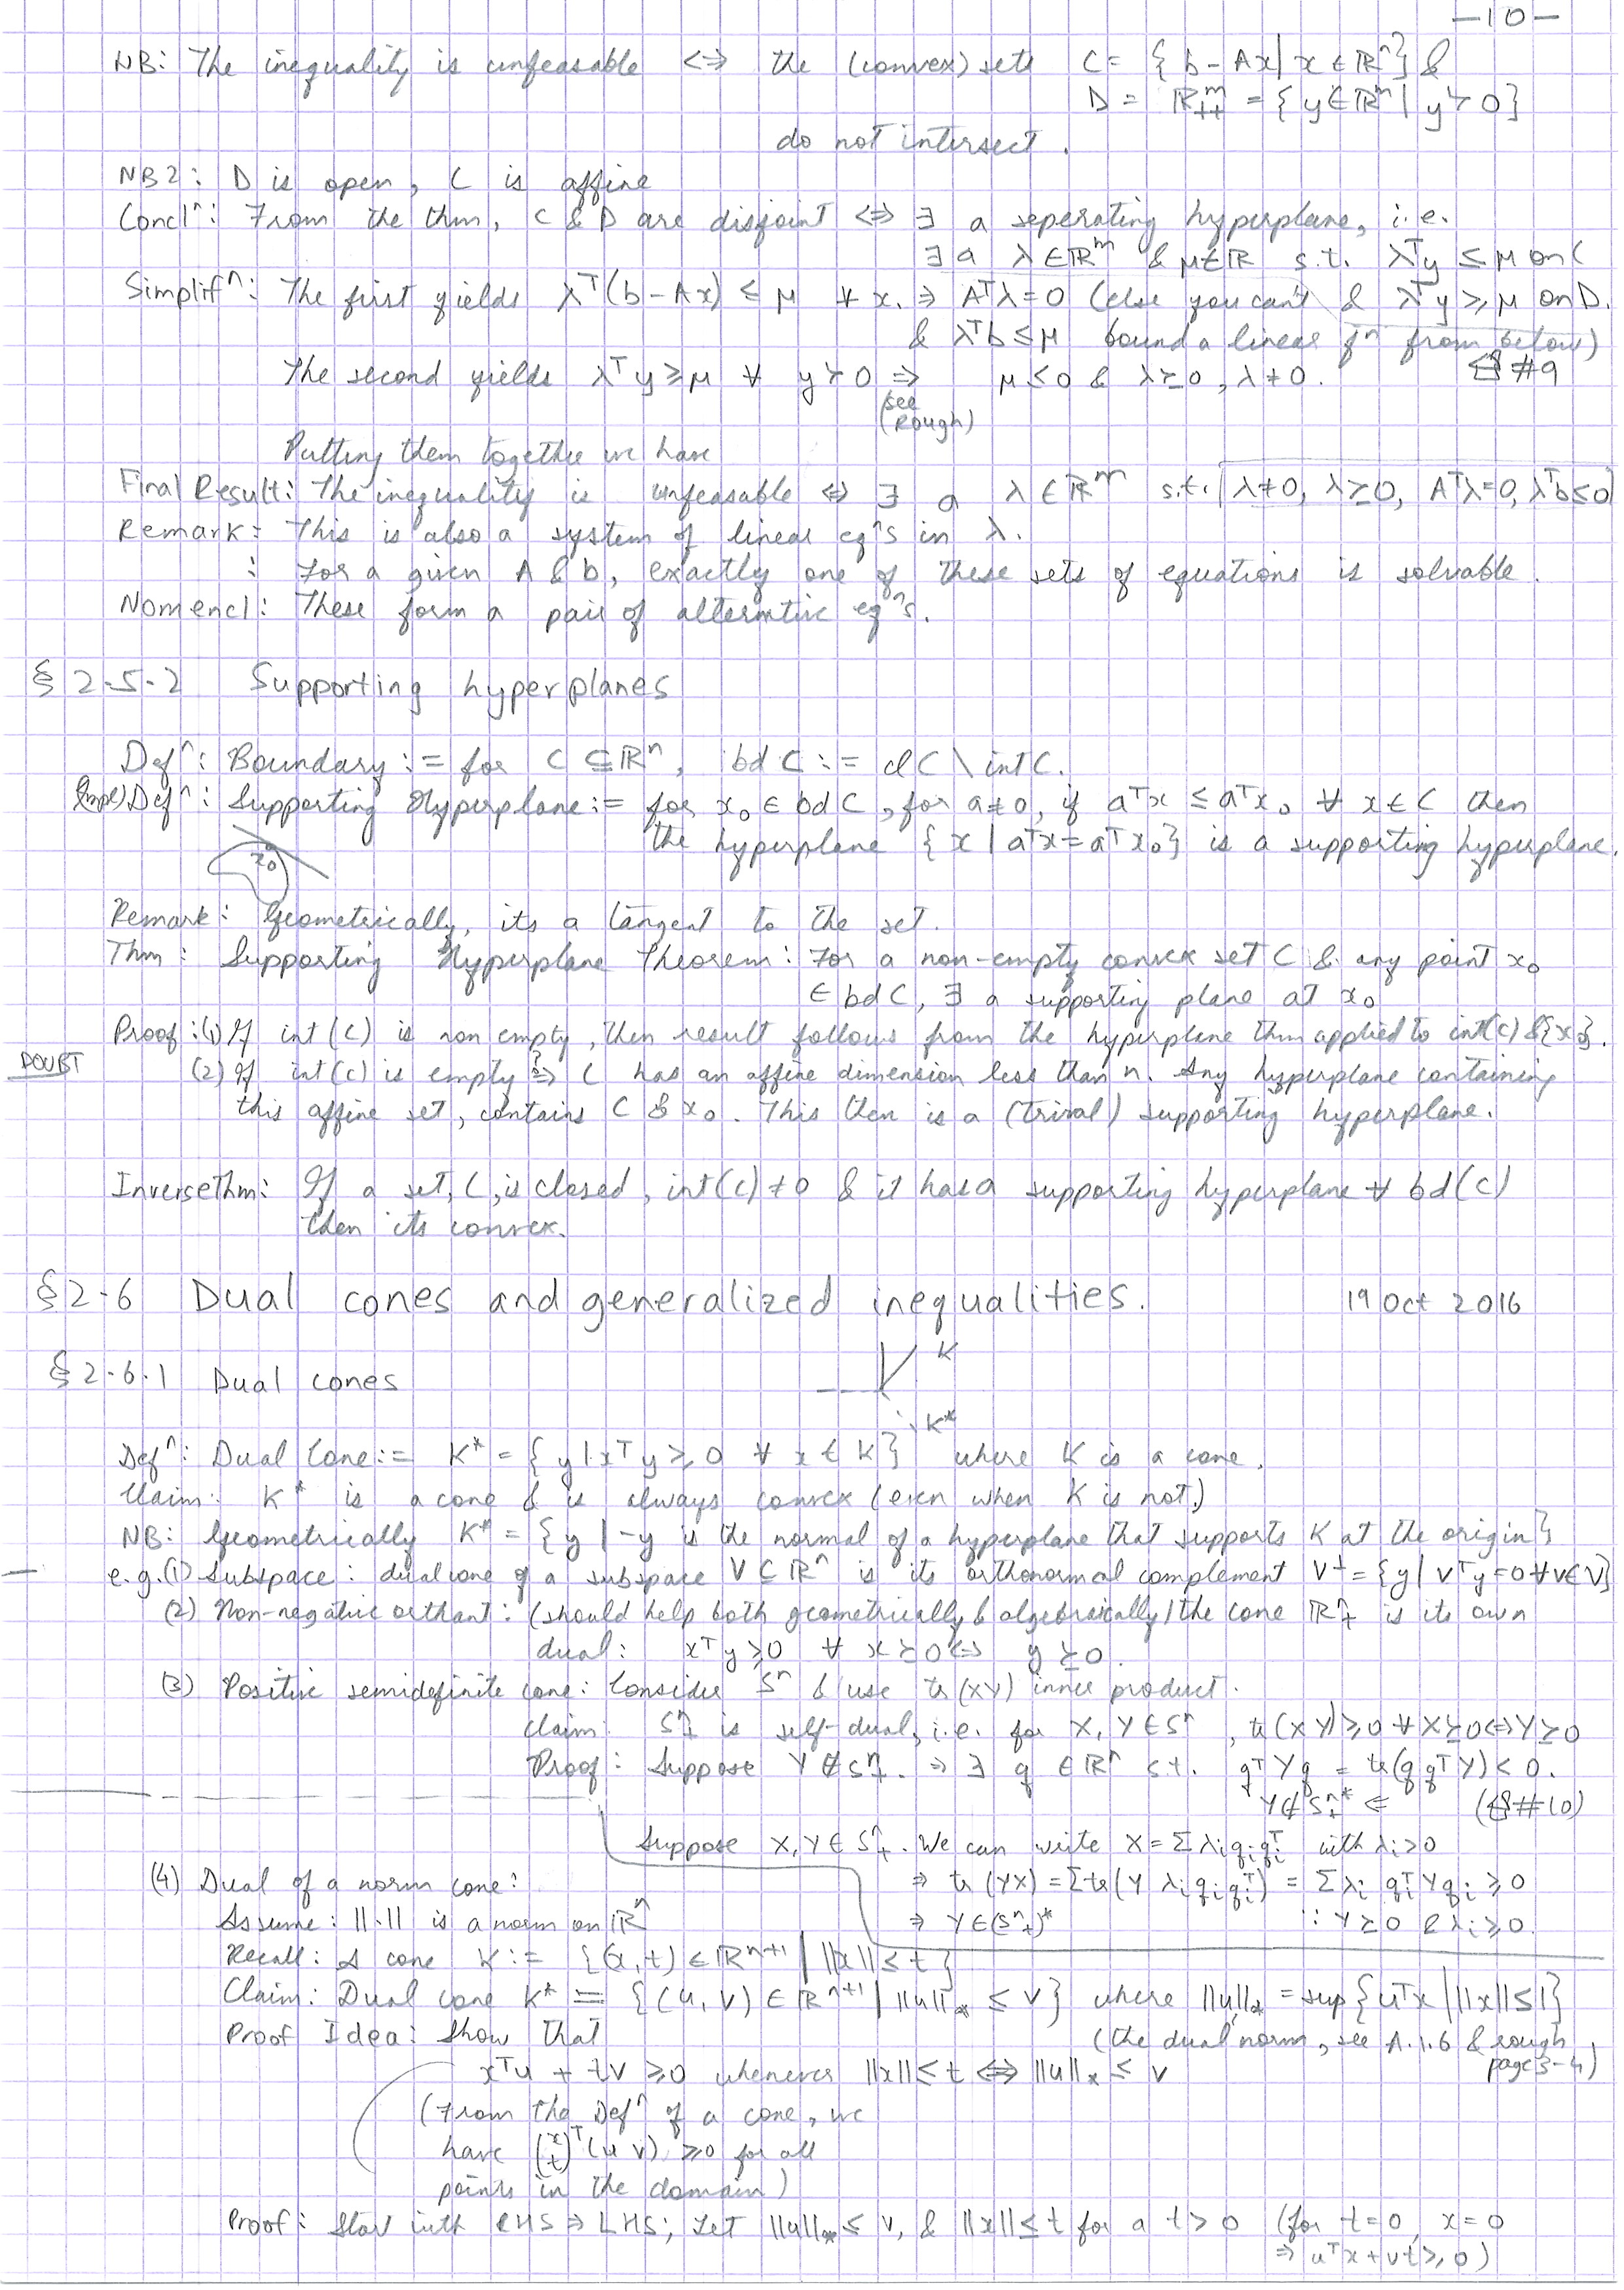 -10-
NB: The inequality is unfeasable <=> the (convex) sets C = {b-Ax | x ∈ ℝⁿ} &
D = ℝᵐ₊₊ = {y ∈ ℝᵐ | y ≻ 0}
do not intersect.
NB2: D is open, C is affine
Conclⁿ: From the thm, C & D are disjoint <=> ∃ a seperating hyperplane, i.e.
∃ a λ ∈ ℝᵐ & μ ∈ ℝ s.t. λᵀy ≤ μ on C
Simplifⁿ: The first yields λᵀ(b-Ax) ≤ μ ∀ x. ⇒ Aᵀλ=0 (else you can't & λᵀy ≥ μ on D.
& λᵀb ≤ μ bound a linear fⁿ from below)
The second yields λᵀy ≥ μ ∀ y ≻ 0 ⇒ μ ≤ 0 & λ ⪰ 0, λ ≠ 0. #9
(see Rough)
Putting them together we have
Final Result: The inequality is unfeasable ⇔ ∃ a λ ∈ ℝᵐ s.t. λ≠0, λ⪰0, Aᵀλ=0, λᵀb≤0
Remark: This is also a system of linear eqⁿs in λ.
: For a given A & b, exactly one of these sets of equations is solvable.
Nomencl: These form a pair of alterntive eqⁿs.
§ 2.5.2 Supporting hyperplanes
Defⁿ: Boundary := for C ⊆ ℝⁿ, bd C := cl C \ int C.
(Impl) Defⁿ: Supporting Hyperplane := for x₀ ∈ bd C, for a≠0, if aᵀx ≤ aᵀx₀ ∀ x ∈ C then
the hyperplane {x | aᵀx = aᵀx₀} is a supporting hyperplane.
x₀
Remark: Geometrically, its a tangent to the set.
Thm: Supporting Hyperplane Theorem: For a non-empty convex set C & any point x₀
∈ bd C, ∃ a supporting plane at x₀
Proof: (1) If int(C) is non empty, then result follows from the hyperplane thm applied to int(C) & {x₀}.
DOUBT (2) If int(C) is empty ⇒? C has an affine dimension less than n. Any hyperplane containing
this affine set, contains C & x₀. This then is a (trival) supporting hyperplane.
Inverse thm: If a set, C, is closed, int(C) ≠ 0 & it has a supporting hyperplane ∀ bd(C)
then its convex.
§ 2.6 Dual cones and generalized inequalities. 19 Oct 2016
§ 2.6.1 Dual cones
K
K*
Defⁿ: Dual Cone := K* = {y | xᵀy ≥ 0 ∀ x ∈ K} where K is a cone.
Claim: K* is a cone & is always convex (even when K is not)
NB: Geometrically K* = {y | -y is the normal of a hyperplane that supports K at the origin}
e.g. (1) Subspace: dual cone of a subspace V ⊆ ℝⁿ is its orthonormal complement V⊥ = {y | vᵀy=0 ∀ v ∈ V}
(2) Non-negative orthant: (should help both geometrically & algebraically) the cone ℝⁿ₊ is its own
dual: xᵀy ≥ 0 ∀ x ⪰ 0 <=> y ⪰ 0.
(3) Positive semidefinite cone: Consider Sⁿ & use tr(XY) inner product.
Claim: Sⁿ₊ is self-dual, i.e. for X, Y ∈ Sⁿ, tr(XY) ≥ 0 ∀ X ⪰ 0 <=> Y ⪰ 0
Proof: Suppose Y ∉ Sⁿ₊. ⇒ ∃ q ∈ ℝⁿ s.t. qᵀYq = tr(qqᵀY) < 0.
Y ∉ Sⁿ₊* ⇐ (#10)
Suppose X, Y ∈ Sⁿ₊. We can write X = Σ λᵢqᵢqᵢᵀ with λᵢ ≥ 0
⇒ tr(YX) = Σ tr(Y λᵢqᵢqᵢᵀ) = Σ λᵢ qᵢᵀYqᵢ ≥ 0
⇒ Y ∈ (Sⁿ₊)* ∵ Y ⪰ 0 & λᵢ ≥ 0.
(4) Dual of a norm cone:
Assume: ||·|| is a norm on ℝⁿ
Recall: A cone K := {(x, t) ∈ ℝⁿ⁺¹ | ||x|| ≤ t}
Claim: Dual cone K* = {(u, v) ∈ ℝⁿ⁺¹ | ||u||* ≤ v} where ||u||* = sup{uᵀx | ||x|| ≤ 1}
(the dual norm, see A.1.6 & rough page 3-4)
Proof Idea: Show that
xᵀu + tv ≥ 0 whenever ||x|| ≤ t <=> ||u||* ≤ v
(From the Defⁿ of a cone, we
have (x t)ᵀ(u v) ≥ 0 for all
points in the domain)
Proof: Start with RHS ⇒ LHS; Let ||u||* ≤ v, & ||x|| ≤ t for a t > 0 (for t=0, x=0
⇒ uᵀx + vt ≥ 0)